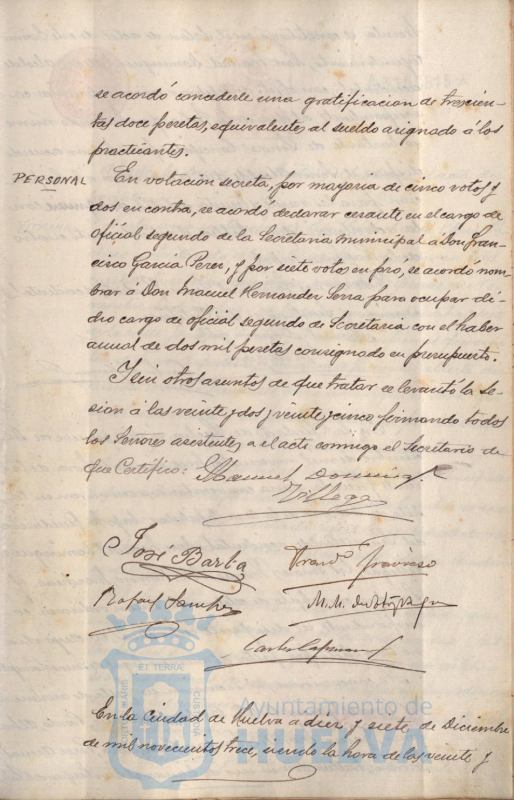 se acordó concederle una gratificacion de trescien-
tas doce pesetas, equivalentes al sueldo asignado á los
practicantes.
PERSONAL
En votación secreta, por mayoria de cinco votos y
dos en contra, se acordó declarar cesante en el cargo de
oficial segundo de la Secretaria municipal á Don Fran-
cisco Garcia Perez, y por siete votos en pró, se acordó nom-
brar á Don Manuel Hernandez Serra para ocupar di-
cho cargo de oficial segundo de Secretaria con el haber
anual de dos mil pesetas consignado en presupuesto.
I sin otros asuntos de que tratar se levantó la se-
sion á las veinte y dos y veinte y cinco firmando todos
los Señores asistentes a el acto conmigo el Secretario de
que Certifico:
Manuel
José Barba
Rafael Sanchez
M. M.
Carlos
ET TERRA
Ayuntamiento de
HUELVA
En la Ciudad de Huelva a diez y siete de Diciembre
de mil novecientos trece, siendo la hora de las veinte y